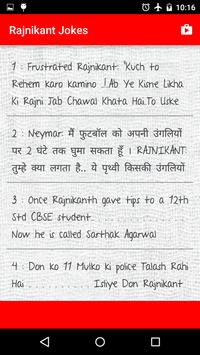 10:16
Rajnikant Jokes
1 : Frustrated Rajnikant: "Kuch to
Rehem karo kamino ..!.Ab Ye Kisne Likha
Ki Rajni Jab Chawal Khata Hai.To Uske
2 : Neymar: मैं फुटबॉल को अपनी उंगलियों
पर 2 घंटे तक घुमा सकता हूँ । RAJNIKANT:
तुम्हे क्या लगता है.. ये पृथ्वी किसकी उंगलियों
3 : Once Rajnikanth gave tips to a 12th
Std CBSE student. . . . . . . . .
Now he is called Sarthak Agarwal
4 : Don ko 11 Mulko ki police Talash Rahi
Hai . . . . . . . . . . . Isliye Don Rajnikant